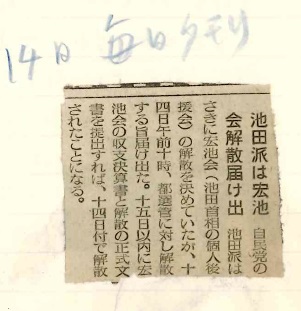 14日 毎日夕刊
池田派は宏池
会解散届け出
自民党の
池田派は
さきに宏池会（池田首相の個人後
援会）の解散を決めていたが、十
四日午前十時、都選管に対し解散
する旨届け出た。十五日以内に宏
池会の収支決算書と解散の正式文
書を提出すれば、十四日付で解散
されたことになる。